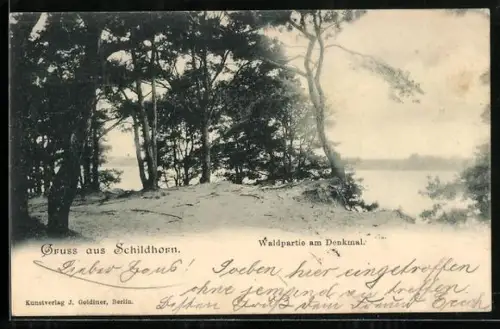 Gruss aus Schildhorn.
Waldpartie am Denkmal.
Lieber Hans! Soeben hier eingetroffen
ohne jemand zu treffen
Besten Gruß Dein Freund Erich
Kunstverlag J. Goldiner, Berlin.